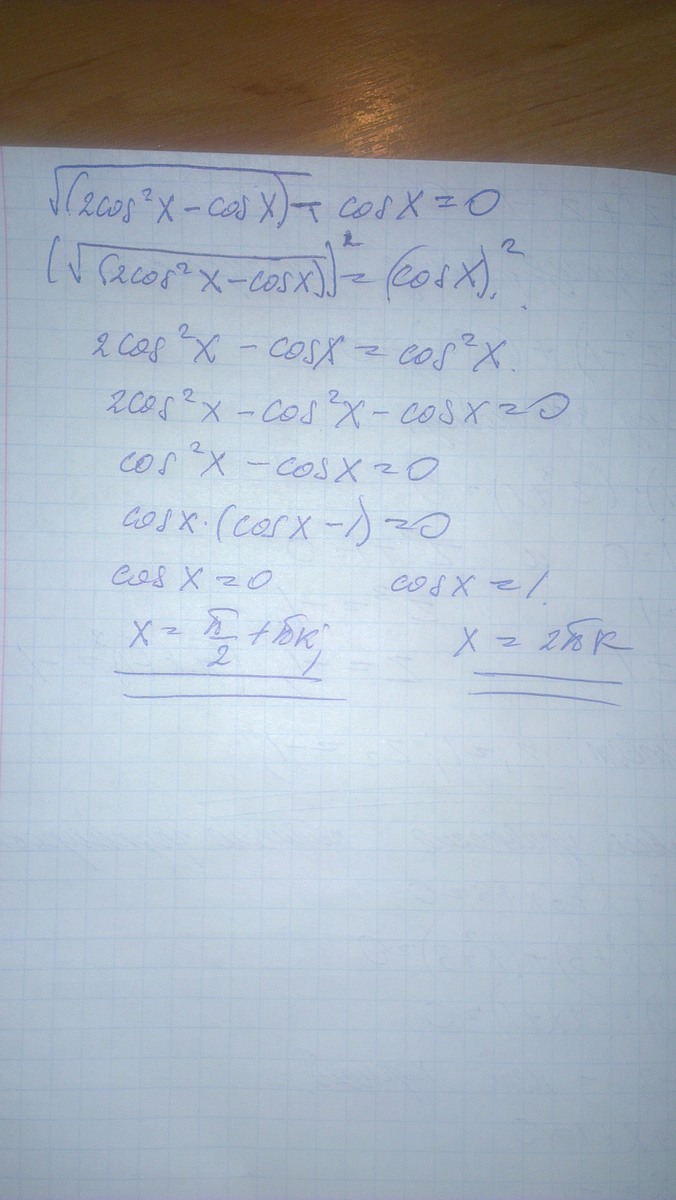 √(2cos²x - cosx) - cosx = 0
(√(2cos²x - cosx))² = (cosx)²
2cos²x - cosx = cos²x.
2cos²x - cos²x - cosx = 0
cos²x - cosx = 0
cosx·(cosx - 1) = 0
cosx = 0 cosx = 1.
x = π/2 + πk; x = 2πk